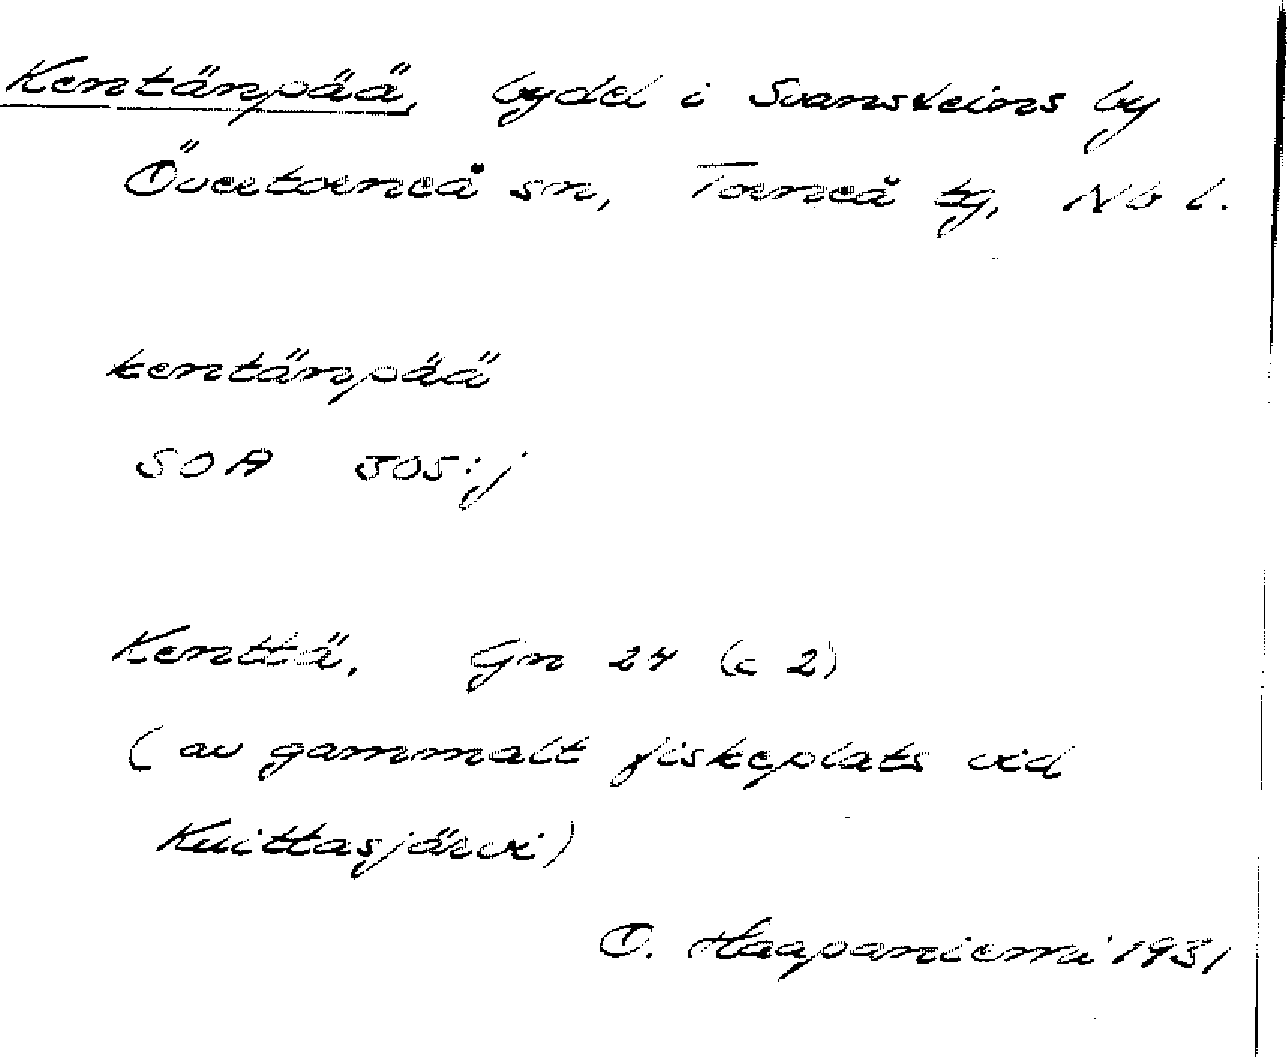 Kentänpää, bydel i Svansteins by
Övertorneå sn, Torneå tg, Nb l.
kentänpää
SOA 505:j
Kenttä. Gn 24 (c 2)
(av gammalt fiskeplats vid
Kuittasjärvi)
O. Haapaniemi 1931